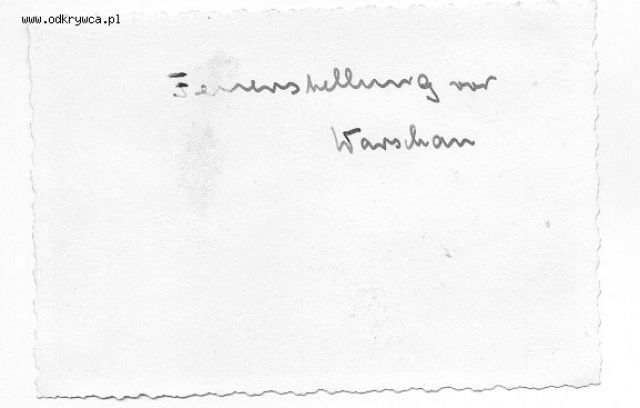 www.odkrywca.pl
Feuerstellung vor
Warschau